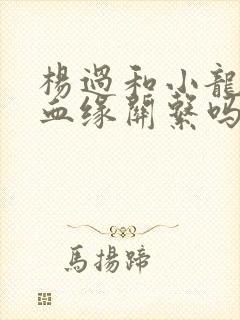 楊過和小龍
血缘關繫吗
馬揚蹄